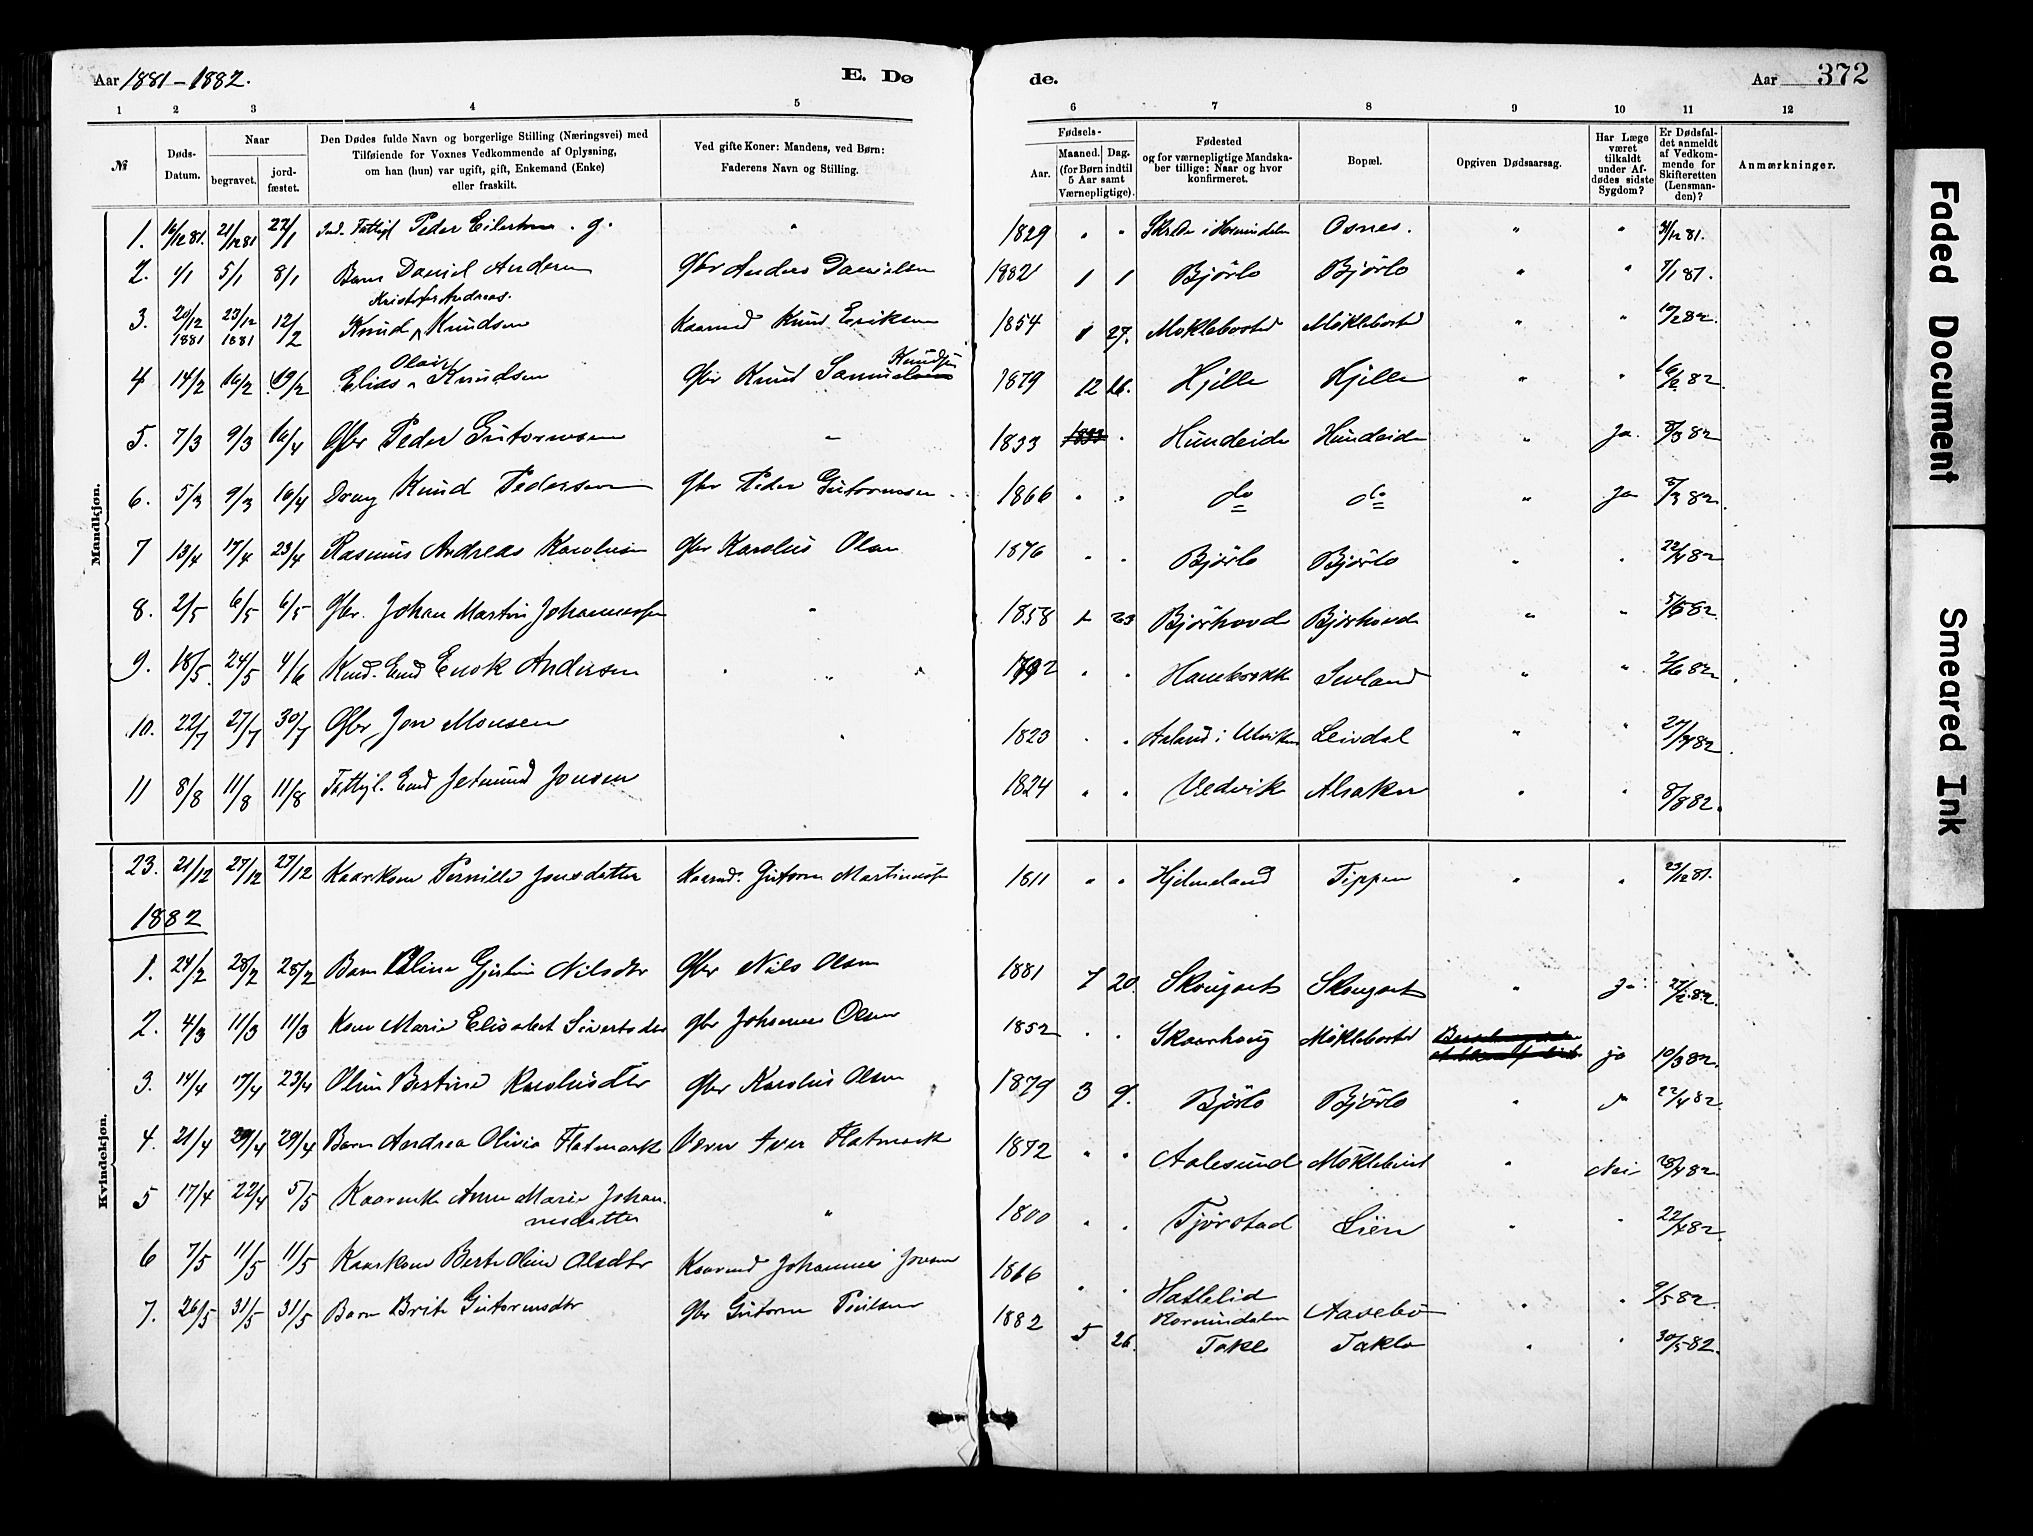 Aar 1881-1882.
E. Dø
de.
Aar 372
1 2 3 4 5 6 7 8 9 10 11 12
№
Døds-Datum.
Naar
begravet. jord-fæstet.
Den Dødes fulde Navn og borgerlige Stilling (Næringsvei) med
Tilføiende for Voxnes Vedkommende af Oplysning,
om han (hun) var ugift, gift, Enkemand (Enke)
eller fraskilt.
Ved gifte Koner: Mandens, ved Børn:
Faderens Navn og Stilling.
Fødsels-
Aar. Maaned. Dag.
(for Børn indtil
5 Aar samt
Værnepligtige).
Fødested
og for værnepligtige Mandska-
ber tillige: Naar og hvor
konfirmeret.
Bopæl.
Opgiven Dødsaarsag.
Har Læge
været
tilkaldt
under Af-
dødes sidste
Sygdom?
Er Dødsfal-
det anmeldt
af Vedkom-
mende for
Skifteretten
(Lensman-
den)?
Anmærkninger.
Mandkjøn.
1. 16/12 81. 21/12 81 22/1 Ind. Fattigl Peder g. " 1829 " " Osnes. " "
2. 1/1 5/1 8/1 Barn Daniel Andersen Gbr Anders Danielsen 1882 1 1 Bjørlo Bjørlo " " 7/1 81.
Kristofer Andreas.
3. 20/12 1881 23/12 1881 12/2 Knud Knudsen Kaarmd Knud Eriksen 1854 1 27. Møklebosted Møklebosted " "
Olai Knudsen
4 14/2 16/2 19/2 Elias Knudsen Gbr Knud 1879 12 16. Hjelle Hjelle " " 16/2 82.
5. 7/3 9/3 16/4 Gbr Peder Gutormsen " 1833 " Hundeide Hundeide " Ja. 8/3 82
6. 5/3 9/3 16/4 Dreng Knud Pedersen Gbr Peder Gutormsen 1866 " " do do " Ja 8/3 82.
7 13/4 17/4 23/4 Rasmus Andreas Karolusen Gbr Karolus Olsen 1876 " " Bjørlo Bjørlo " " 22/4 82
8. 2/5 6/5 6/5 Gbr. Johan Martin Johannessen " 1858 1 23 Bjørhovde Bjørhovde " " 5/5 82
9. 18/5. 24/5 4/6 Kaard. Emd Enok Andersen " " Sevland " " 2/6 82.
10. 22/7 27/7 30/7 Gbr Jon Monsen " 1823 " " Aaland i Utviken Leivdal " " 27/7 82.
11 8/8 11/8 11/8 Fattigl. Emd Jetmund Jonsen 1824 " " Vedvik Alsaker " " 8/8 82.
23. 21/12 27/12 27/12 Kaarkone Pernille Jonsdatter Kaarmd. Gutorm Martinusen 1811 " " Hjelmeland Tippen " " 23/12 81.
1882
Kvindekjøn.
1. 24/2 28/2 28/2 Barn Oline Gjertine Nilsdtr Gbr Nils Olsen 1881 7 20. Skougset Skougset " Ja 27/2 82.
2. 4/3 11/3 11/3 Kone Marie Elisabet Sivertsdtr Gbr Johannes Olsen 1852 " " Skaarhaug Møklebosted ja 10/3 82.
3. 14/4 17/4 23/4 Olin Bertine Karolusdtr Gbr Karolus Olsen 1879 3 9. Bjørlo Bjørlo " 22/4 82.
4. 21/4 29/4 29/4 Barn Andrea Olivia Flatmark Iver Flatmark 1872 " " Aalesund Møklebust " Nei 28/4 82.
5 17/4 22/4 5/5 Kaarenke Anne Marie Johan-
nesdatter " 1800 " " Tjørstad Lien " " 22/4 82.
6 7/5 11/5 11/5 Kaarkone Berte Oline Olsdtr Kaarmd Johannes Jonsen 1816 " " Hatlelid
Hornindalen Aasebø " " 9/5 82.
7. 26/5 31/5 31/5 Barn Brite Gutormsdtr Gbr Gutorm 1882 5 26. Taklo Taklo " " 30/5 82.
Faded Document
Smeared Ink